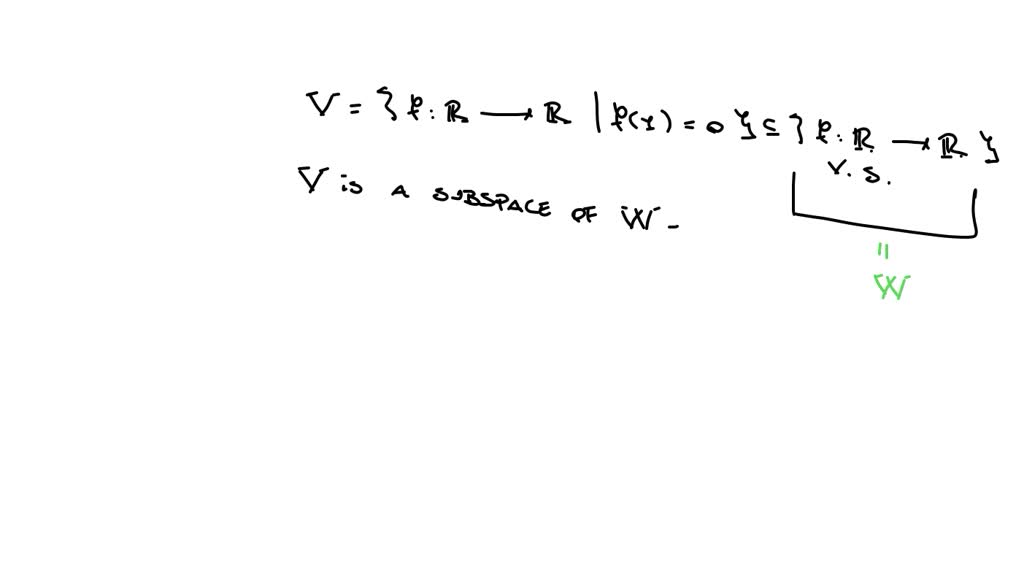 V = { f : ℝ ⟶ ℝ | f(1) = 0 } ⊆ { f : ℝ ⟶ ℝ }
V. S.
V is A SUBSPACE OF W -
=
W